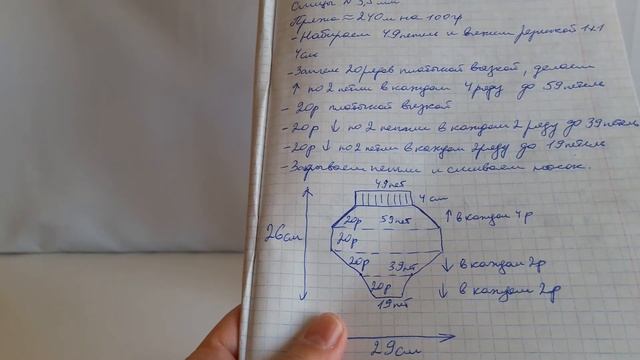 Спицы № 3,5 мм
Пряжа ≈ 240м на 100гр
- Набираем 49 петель и вяжем резинкой 1х1
4см
- Затем 20 рядов платочной вязкой, делаем
↑ по 2 петли в каждом 4 ряду до 59 петель
- 20р платочной вязкой
- 20р ↓ по 2 петли в каждом 2 ряду до 39 петель
- 20р ↓ по 2 петли в каждом 2 ряду до 19 петель
- Закрываем петли и сшиваем носок.
49 пет
4 см
20р 59 пет ↑ в каждом 4р
26 см 20р
20р 39 пет ↓ в каждом 2р
20р ↓ в каждом 2р
19 пет
29 см